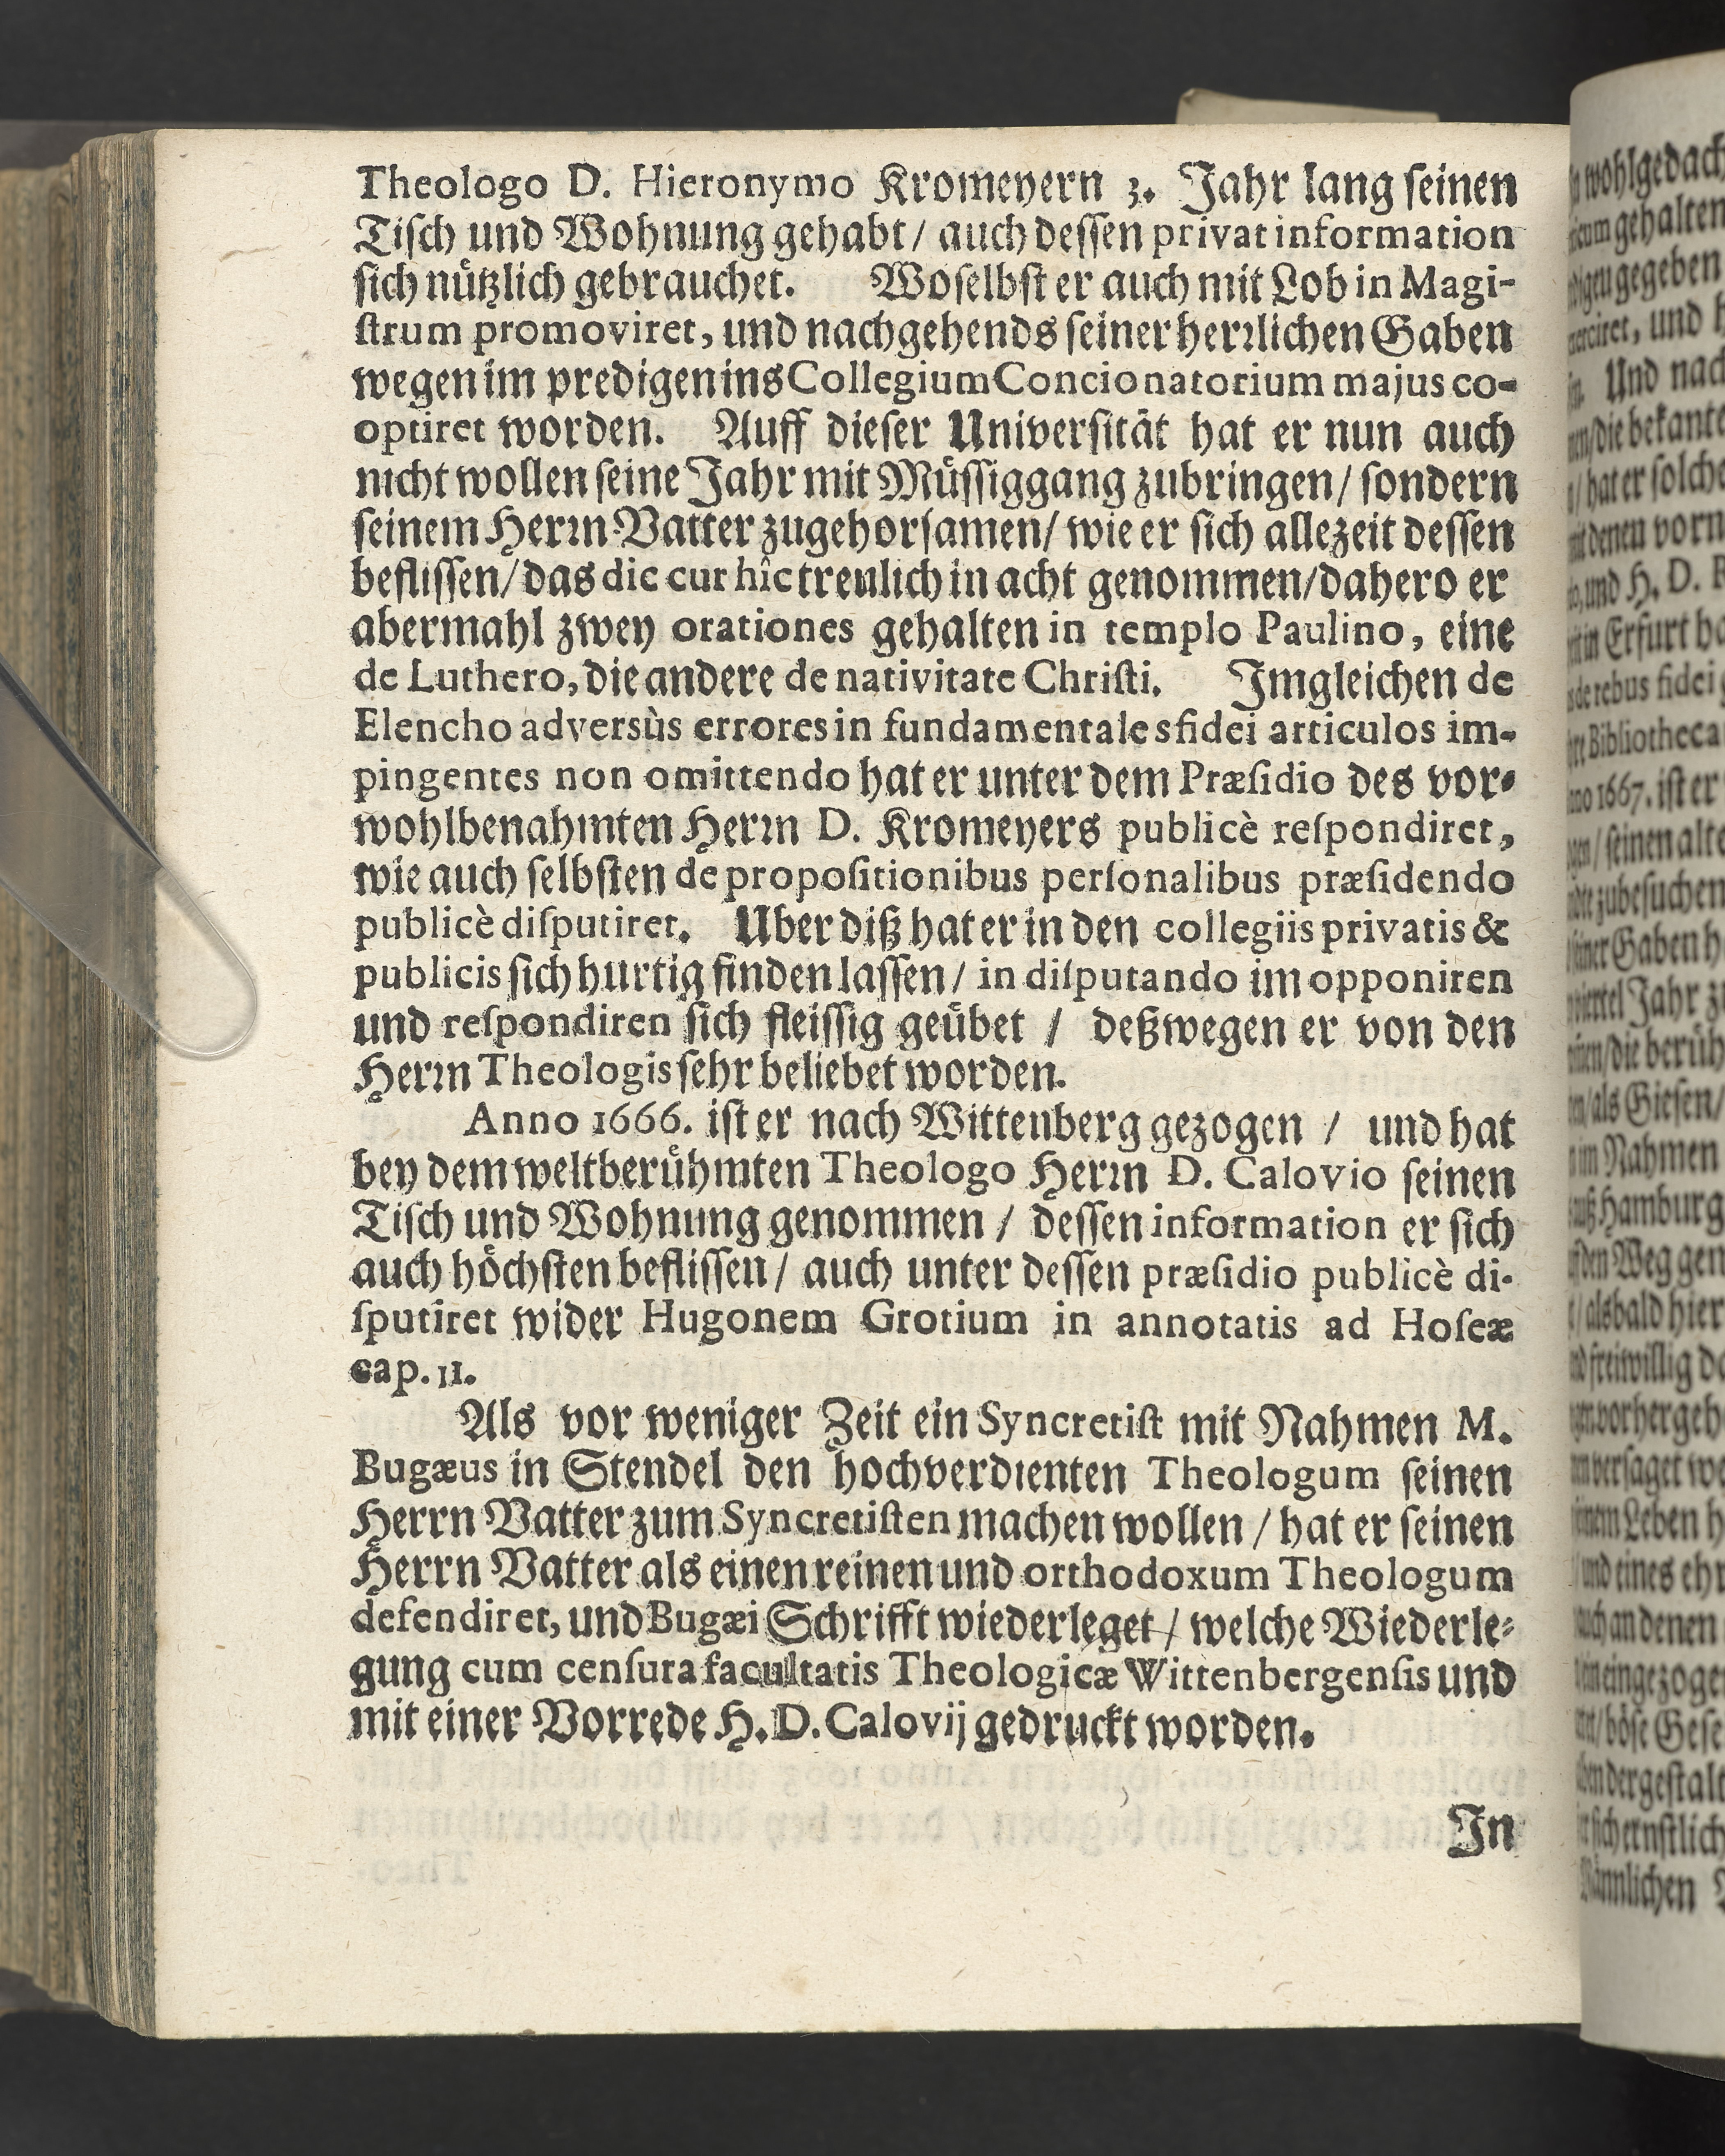 Theologo D. Hieronymo Kromeyern 3. Jahr lang ſeinen
Tiſch und Wohnung gehabt / auch deſſen privat information
ſich nuͤtzlich gebrauchet. Woſelbſt er auch mit Lob in Magi-
ſtrum promoviret, und nachgehends ſeiner herꝛlichen Gaben
wegen im predigen ins Collegium Concionatorium majus co-
optiret worden. Auff dieſer Univerſitaͤt hat er nun auch
nicht wollen ſeine Jahr mit Muͤſſiggang zubringen / ſondern
ſeinem Herꝛn Vatter zugehorſamen / wie er ſich allezeit deſſen
befliſſen / das dic cur hîc treulich in acht genommen / dahero er
abermahl zwey orationes gehalten in templo Paulino, eine
de Luthero, die andere de nativitate Chriſti. Imgleichen de
Elencho adversùs errores in fundamentales fidei articulos im-
pingentes non omittendo hat er unter dem Præſidio des vor-
wohlbenahmten Herꝛn D. Kromeyers publicè reſpondiret,
wie auch ſelbſten de propoſitionibus perſonalibus præſidendo
publicè diſputiret. Uber diß hat er in den collegiis privatis &
publicis ſich hurtig finden laſſen / in diſputando im opponiren
und reſpondiren ſich fleiſſig geuͤbet / deßwegen er von den
Herꝛn Theologis ſehr beliebet worden.
Anno 1666. iſt er nach Wittenberg gezogen / und hat
bey dem weltberuͤhmten Theologo Herꝛn D. Calovio ſeinen
Tiſch und Wohnung genommen / deſſen information er ſich
auch hoͤchſten befliſſen / auch unter deſſen præſidio publicè di-
ſputiret wider Hugonem Grotium in annotatis ad Hoſeæ
cap. 11.
Als vor weniger Zeit ein Syncretiſt mit Nahmen M.
Bugæus in Stendel den hochverdienten Theologum ſeinen
Herrn Vatter zum Syncretiſten machen wollen / hat er ſeinen
Herrn Vatter als einen reinen und orthodoxum Theologum
defendiret, und Bugæi Schrifft wiederleget / welche Wiederle-
gung cum cenſura facultatis Theologicæ Wittenbergenſis und
mit einer Vorrede H. D. Calovij gedruckt worden.
In